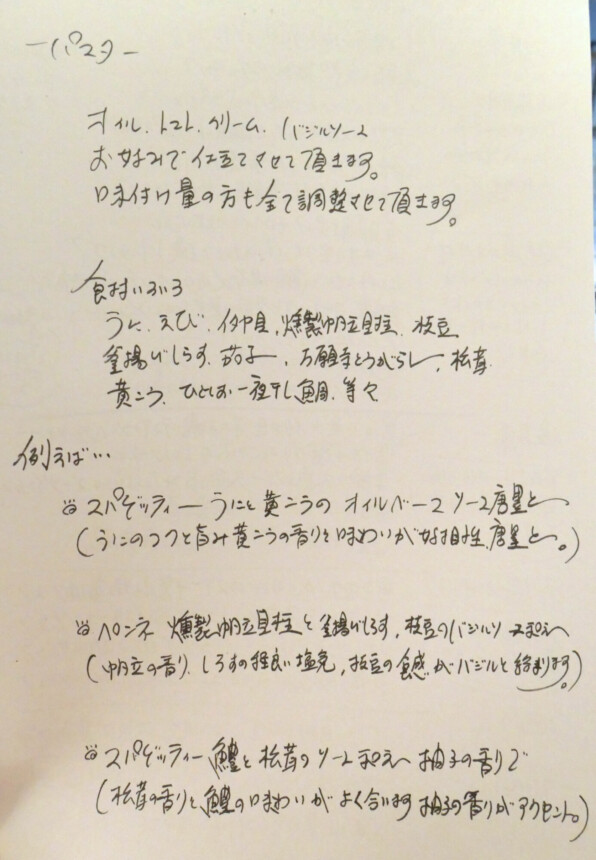 ーパスターー
オイル、トマト、クリーム、バジルソース
お好みで仕立てさせて頂きます。
味付け量の方も全て調整させて頂きます。
食材いろいろ
うに、えび、燻製帆立貝柱、枝豆
釜揚げしらす、茄子、万願寺とうがらし、松茸
黄ニラ、ひとしお一夜干し鯛、等々
例えば…
スパゲッティー うにと黄ニラの オイルベースソース唐墨と
(うにのコクと旨み黄ニラの香りと味わいが好相性、唐墨と。)
ペンネ 燻製帆立貝柱と釜揚げしらす、枝豆のバジルソース
(帆立の香り、しらすの程良い塩気、枝豆の食感がバジルと絡まります。)
スパゲッティー 鱧と松茸のソース 柚子の香りで
(松茸の香りと鱧の味わいがよく合います 柚子の香りがアクセント。)